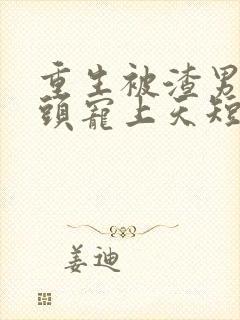 重生被渣男
頭寵上天短
姜迪